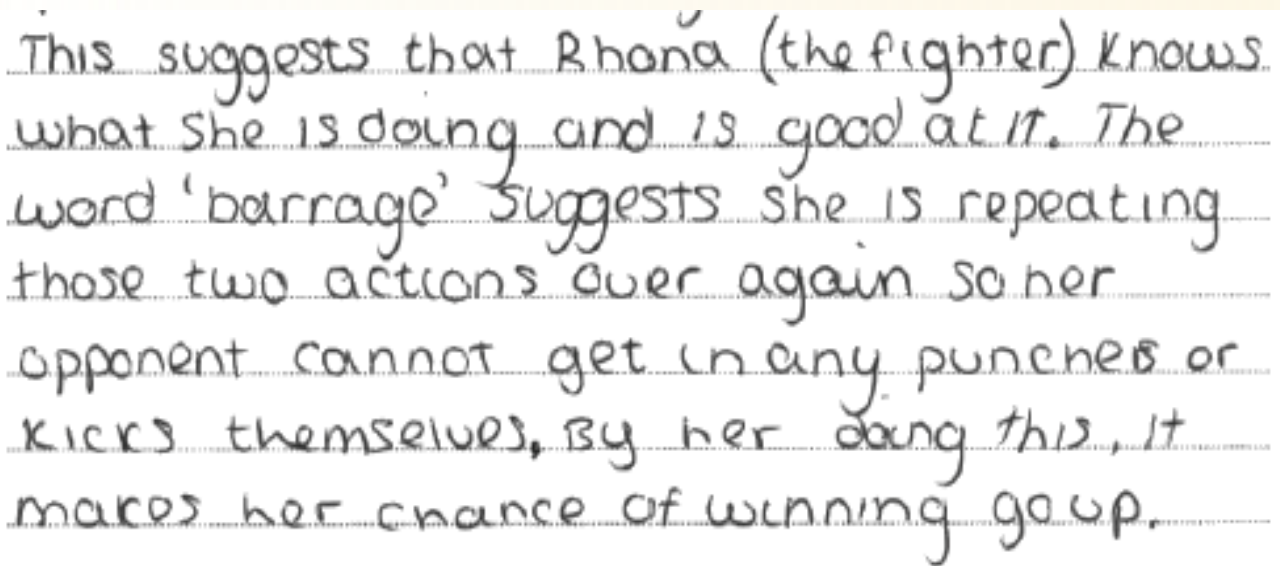 This suggests that Rhona (the fighter) knows
what she is doing and is good at it. The
word 'barrage' suggests she is repeating
those two actions over again so her
opponent cannot get in any punches or
kicks themselves. By her doing this, it
makes her chance of winning go up.